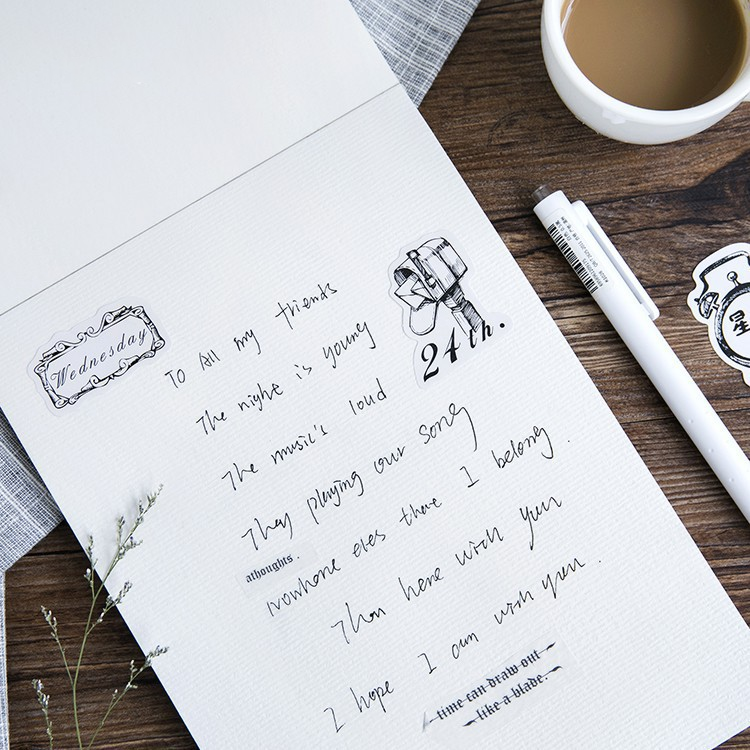 Wednesday
24th.
To All my friends
The night is young
The music's loud
They playing our song
athoughts.
Nowhere eles there I belong.
Than here with you
I hope I am with you.
time can draw out
like a blade.
星